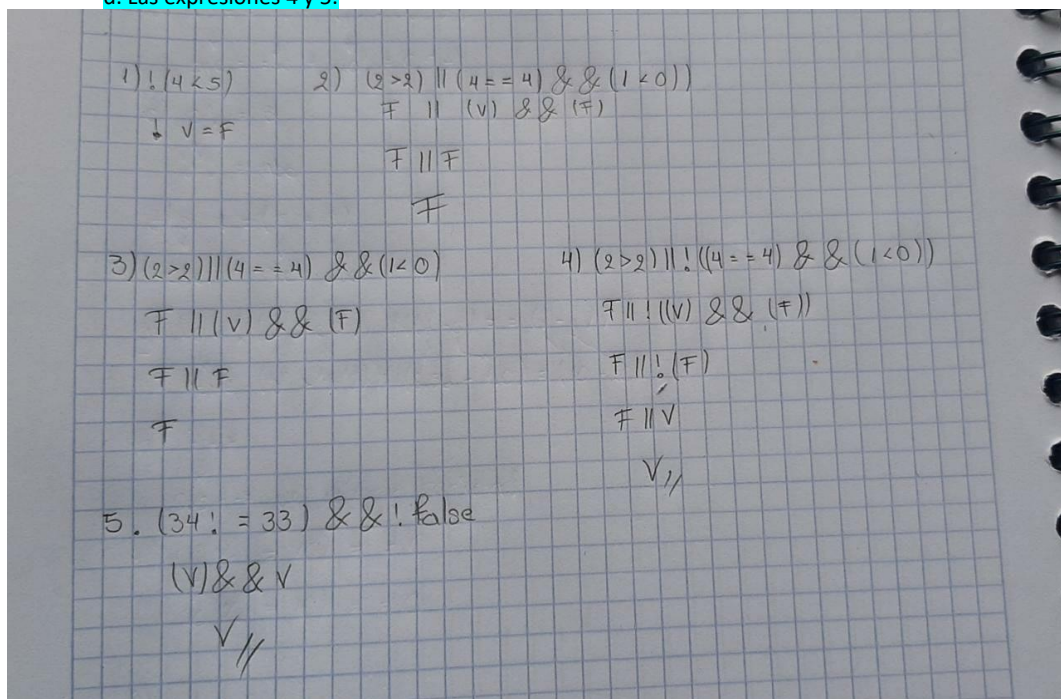 a. Las expresiones 4 y 5.
1) !(4<5)
! V = F
2) (2>2) || (4==4) && (1<0))
F || (V) && (F)
F || F
F
3) (2>2)||(4==4) && (1<0)
F || (V) && (F)
F || F
F
4) (2>2) || !((4==4) && (1<0))
F || !((V) && (F))
F || ! (F)
F || V
V //
5. (34! = 33) && ! false
(V) && V
V //